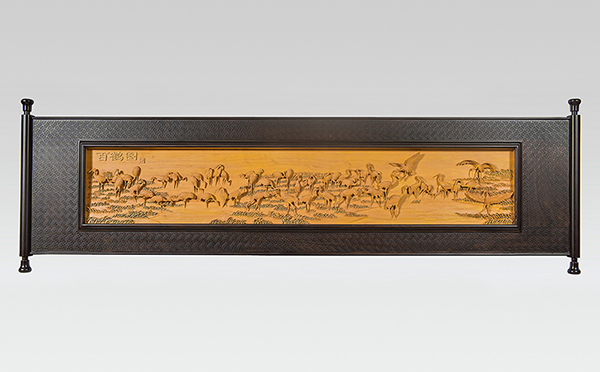 百鹤图